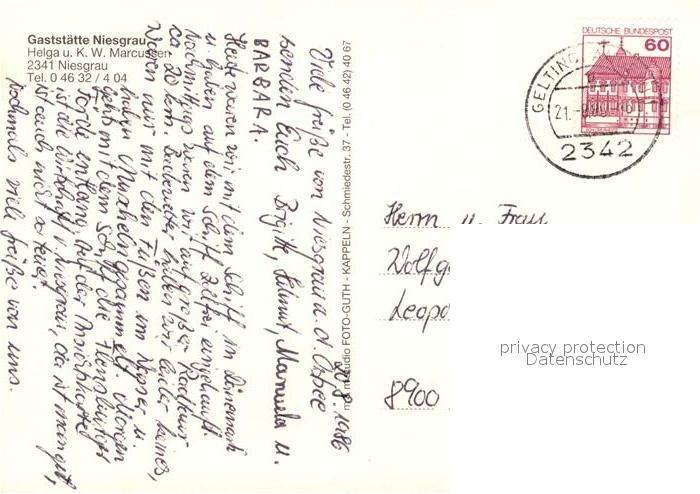 Gaststätte Niesgrau
Helga u. K. W. Marcussen
2341 Niesgrau
Tel. 0 46 32 / 4 04
20.8.1986
Viele Grüße von Niesgrau a. d. Ostsee
senden Euch Brigitte, Helmut, Manuela u.
BARBARA.
Heute waren wir mit dem Schiff in Dänemark
u. haben auf dem Schiff zollfrei eingekauft.
Nachmittags waren wir auf großer Radtour
ca 20 km. Badewetter haben wir leider keines,
waren nur mit den Füßen im Wasser u.
haben Muscheln gesammelt. Morgen
geht's mit dem Schiff die Flensburger
Förde entlang. Auf der Ansichtskarte
ist die Wirtschaft v. Niesgrau, da ist man gut,
ist auch nicht so teuer.
Nochmals viele Grüße von uns.
FOTO-GUTH - KAPPELN - Schmiedestr. 37 - Tel. (0 46 42) 40 67
DEUTSCHE BUNDESPOST
60
GELTING
21.
2342
Herrn u. Frau
Wolfg
Leopo
8900
privacy protection
Datenschutz